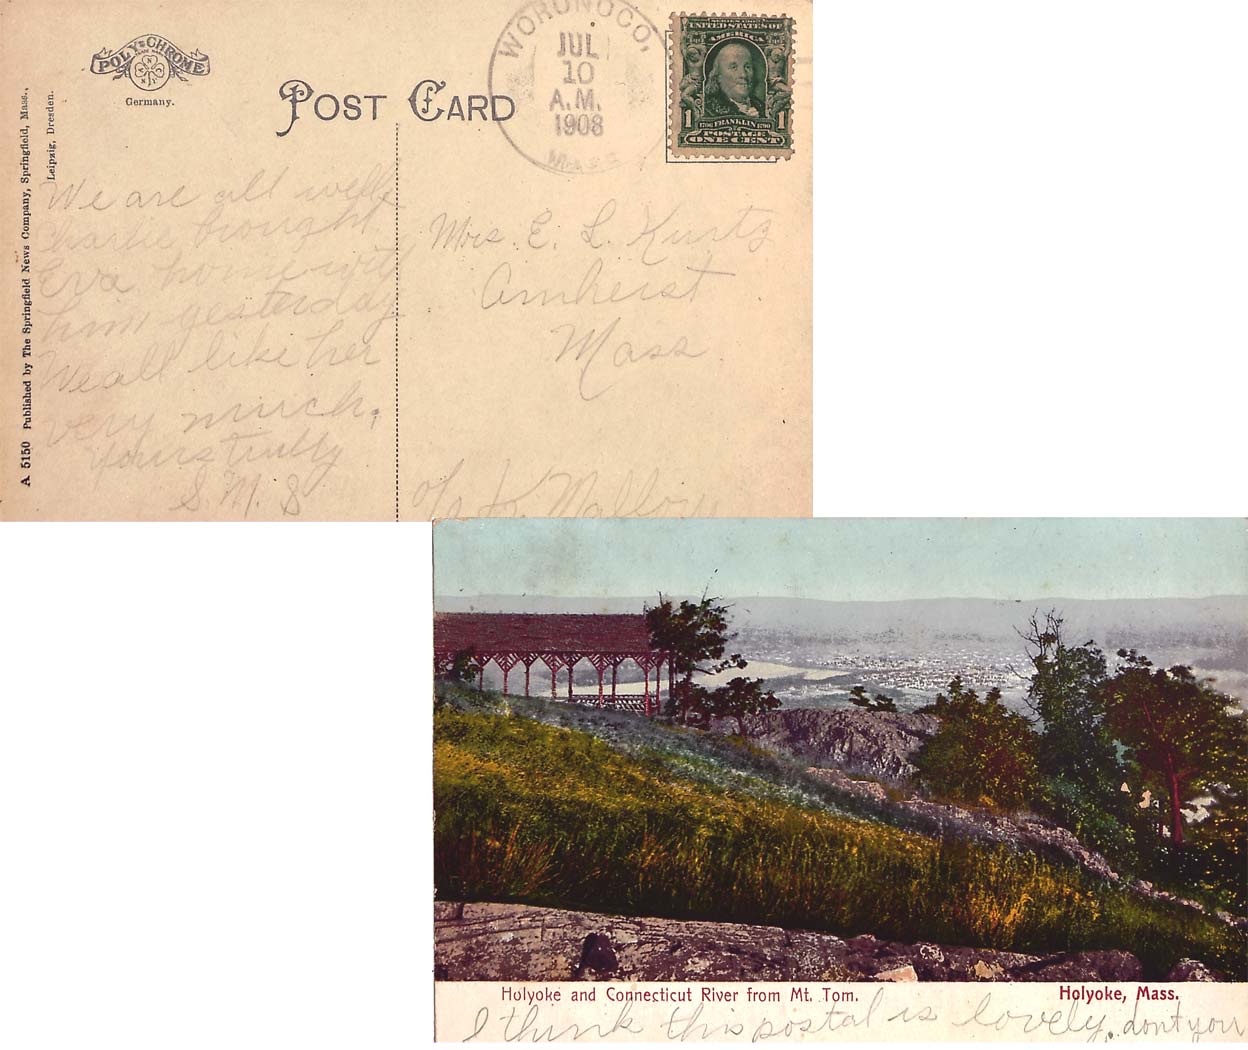 POLY-CHROME
Germany.
POST CARD
WORONOCO,
JUL
10
A.M.
1908
MASS
SERIES 1902
UNITED STATES OF
AMERICA
1706 FRANKLIN 1790
1 POSTAGE 1
ONE CENT
A 5150 Published by The Springfield News Company, Springfield, Mass.,
Leipzig, Dresden.
We are all well
Charlie brought
Eva home with
him yesterday
We all like her
very much.
Yours truly
S. M. S
Mrs. E. L. Kurtz
Amherst
Mass
c/o Malloy
Holyoke and Connecticut River from Mt. Tom.
Holyoke, Mass.
I think this postal is lovely, dont you